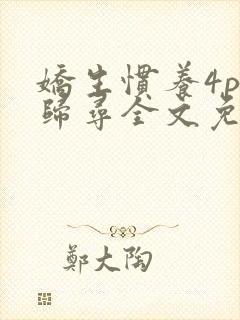 嬌生慣養4p
歸尋全文免
鄭大陶